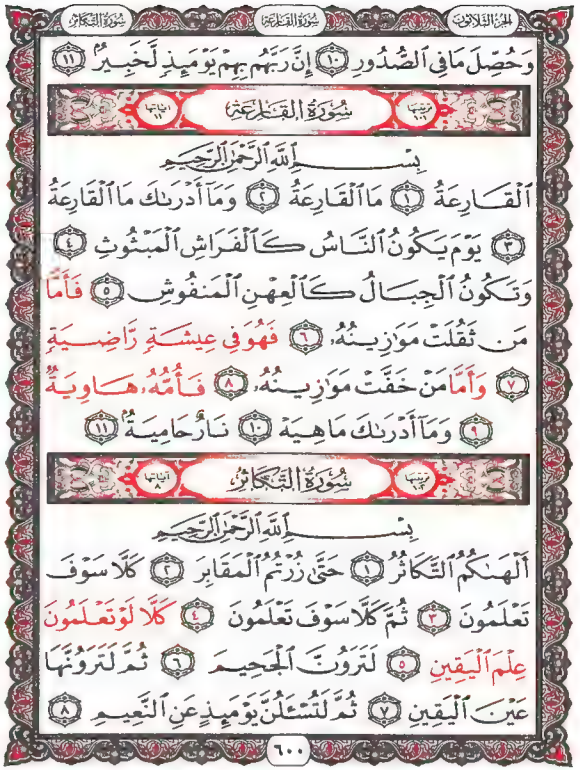 الجزء الثلاثون سورة القارعة سورة التكاثر
وَحُصِّلَ مَا فِي ٱلصُّدُورِ ١٠ إِنَّ رَبَّهُم بِهِمْ يَوْمَئِذٍ لَّخَبِيرٌۢ ١١
ترتيبها ١٠١ سُورَةُ القَارِعَة آياتها ١١
بِسْمِ ٱللَّهِ ٱلرَّحْمَٰنِ ٱلرَّحِيمِ
ٱلْقَارِعَةُ ١ مَا ٱلْقَارِعَةُ ٢ وَمَآ أَدْرَىٰكَ مَا ٱلْقَارِعَةُ
٣ يَوْمَ يَكُونُ ٱلنَّاسُ كَٱلْفَرَاشِ ٱلْمَبْثُوثِ ٤
وَتَكُونُ ٱلْجِبَالُ كَٱلْعِهْنِ ٱلْمَنفُوشِ ٥ فَأَمَّا
مَن ثَقُلَتْ مَوَٰزِينُهُۥ ٦ فَهُوَ فِي عِيشَةٍ رَّاضِيَةٍ
٧ وَأَمَّا مَنْ خَفَّتْ مَوَٰزِينُهُۥ ٨ فَأُمُّهُۥ هَاوِيَةٌ
٩ وَمَآ أَدْرَىٰكَ مَا هِيَهْ ١٠ نَارٌ حَامِيَةٌۢ ١١
ترتيبها ١٠٢ سُورَةُ التَّكَاثُر آياتها ٨
بِسْمِ ٱللَّهِ ٱلرَّحْمَٰنِ ٱلرَّحِيمِ
أَلْهَىٰكُمُ ٱلتَّكَاثُرُ ١ حَتَّىٰ زُرْتُمُ ٱلْمَقَابِرَ ٢ كَلَّا سَوْفَ
تَعْلَمُونَ ٣ ثُمَّ كَلَّا سَوْفَ تَعْلَمُونَ ٤ كَلَّا لَوْ تَعْلَمُونَ
عِلْمَ ٱلْيَقِينِ ٥ لَتَرَوُنَّ ٱلْجَحِيمَ ٦ ثُمَّ لَتَرَوُنَّهَا
عَيْنَ ٱلْيَقِينِ ٧ ثُمَّ لَتُسْـَٔلُنَّ يَوْمَئِذٍ عَنِ ٱلنَّعِيمِ ٨
٦٠٠